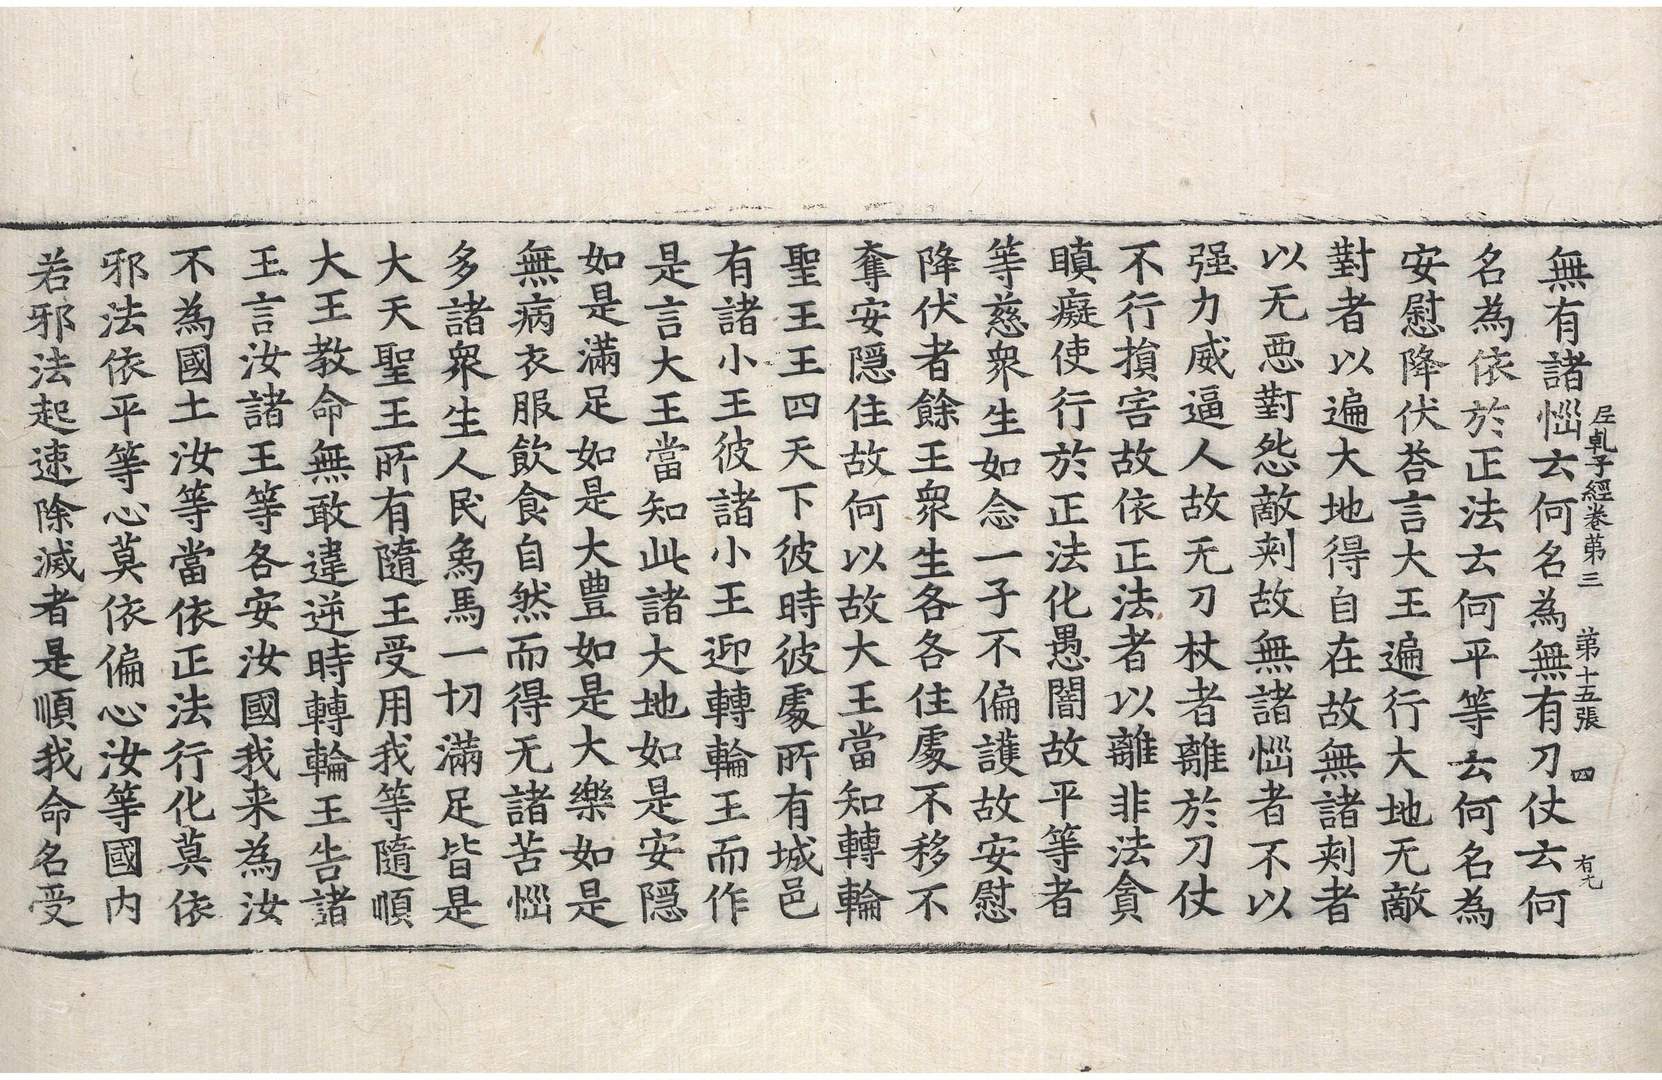 尼乹子經卷苐三　苐十五張　四
無有諸惱云何名為無有刀仗云何
名為依於正法云何平等云何名為
安慰降伏荅言大王遍行大地无敵
對者以遍大地得自在故無諸刾者
以无惡對怨敵刾故無諸惱者不以
强力威逼人故无刀杖者離於刀仗
不行損害故依正法者以離非法貪
瞋癡使行於正法化愚闇故平等者
等慈衆生如念一子不偏護故安慰
降伏者餘王衆生各各住處不移不
奪安隱住故何以故大王當知轉輪
聖王王四天下彼時彼處所有城邑
有諸小王彼諸小王迎轉輪王而作
是言大王當知此諸大地如是安隱
如是滿足如是大豊如是大樂如是
無病衣服飲食自然而得无諸苦惱
多諸衆生人民象馬一切滿足皆是
大天聖王所有隨王受用我等隨順
大王教命無敢違逆時轉輪王告諸
王言汝諸王等各安汝國我来為汝
不為國土汝等當依正法行化莫依
邪法依平等心莫依偏心汝等國内
若邪法起速除滅者是順我命名受